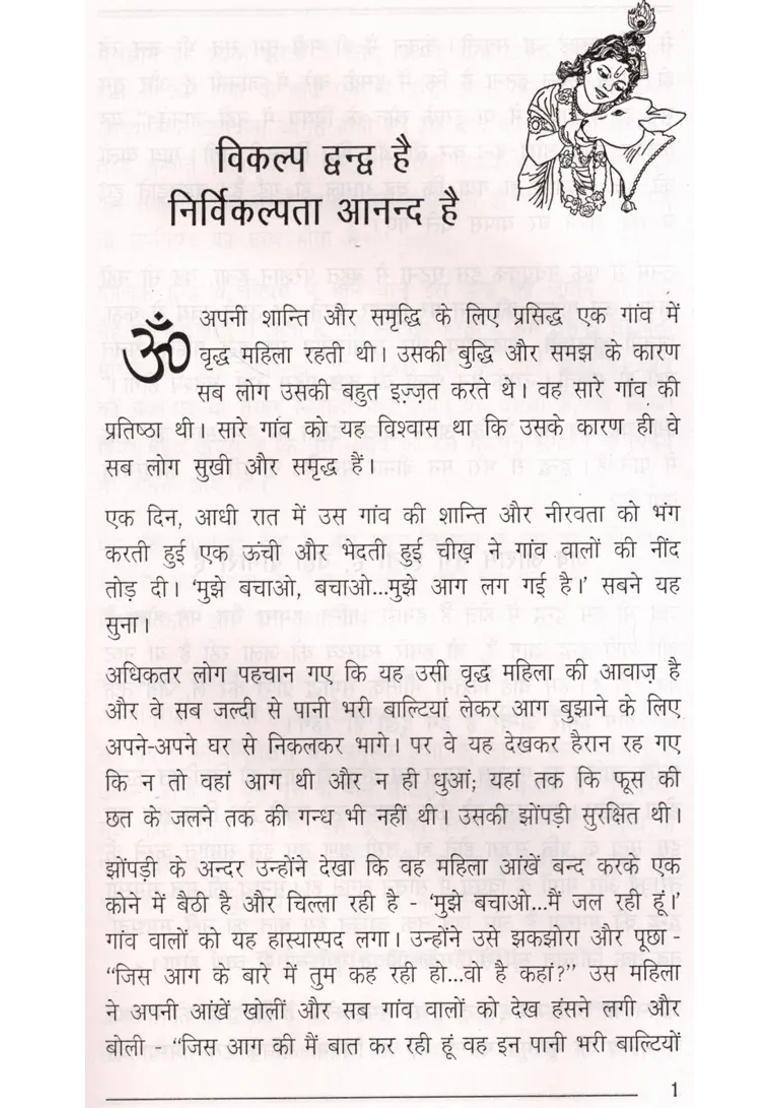 विकल्प द्वन्द्व है
निर्विकल्पता आनन्द है
ॐ अपनी शान्ति और समृद्धि के लिए प्रसिद्ध एक गांव में
वृद्ध महिला रहती थी। उसकी बुद्धि और समझ के कारण
सब लोग उसकी बहुत इज़्ज़त करते थे। वह सारे गांव की
प्रतिष्ठा थी। सारे गांव को यह विश्वास था कि उसके कारण ही वे
सब लोग सुखी और समृद्ध हैं।
एक दिन, आधी रात में उस गांव की शान्ति और नीरवता को भंग
करती हुई एक ऊची और भेदती हुई चीख ने गांव वालों की नींद
तोड़ दी। ‘मुझे बचाओ, बचाओ...मुझे आग लग गई है।’ सबने यह
सुना।
अधिकतर लोग पहचान गए कि यह उसी वृद्ध महिला की आवाज़ है
और वे सब जल्दी से पानी भरी बाल्टियां लेकर आग बुझाने के लिए
अपने-अपने घर से निकलकर भागे। पर वे यह देखकर हैरान रह गए
कि न तो वहां आग थी और न ही धुआं; यहां तक कि फूस की
छत के जलने तक की गन्ध भी नहीं थी। उसकी झोंपड़ी सुरक्षित थी।
झोंपड़ी के अन्दर उन्होंने देखा कि वह महिला आंखें बन्द करके एक
कोने में बैठी है और चिल्ला रही है - ‘मुझे बचाओ...मैं जल रही हूं।’
गांव वालों को यह हास्यास्पद लगा। उन्होंने उसे झकझोरा और पूछा -
“जिस आग के बारे में तुम कह रही हो...वो है कहां?” उस महिला
ने अपनी आंखें खोलीं और सब गांव वालों को देख हंसने लगी और
बोली - “जिस आग की मैं बात कर रही हूं वह इन पानी भरी बाल्टियों
1